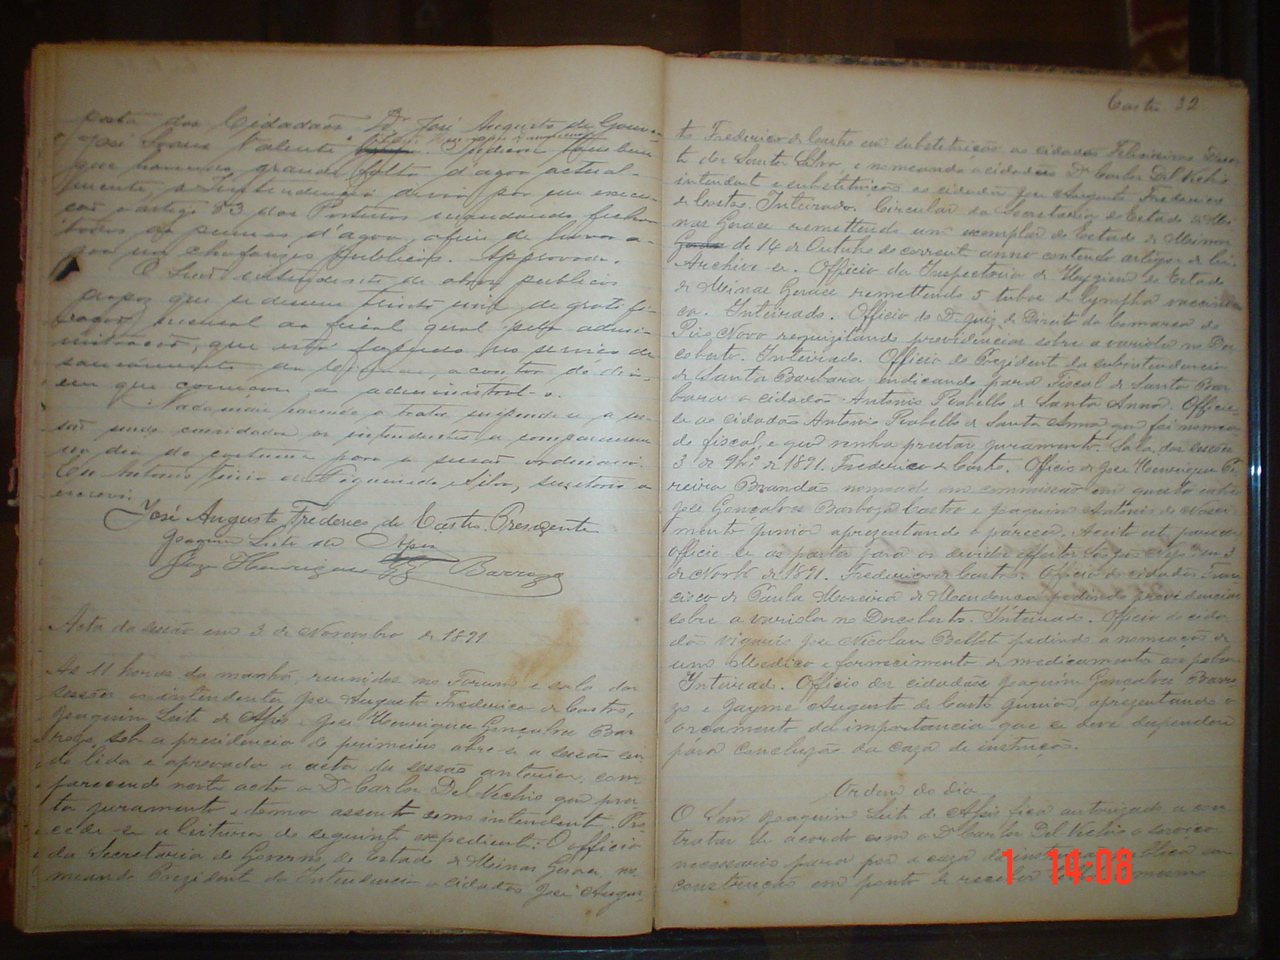 posta dos Cidadãos Dr. José Augusto de Gouvea
José Soares Valente indicou tambem
que havendo grande falta d'agoa actual-
mente, a Intendencia deve por em execu-
ção o artigo 83 das Posturas mandando fechar
todas as pennas d'agoa, afim de haver a-
goa nos chafarizes publicos. Approvado.
O Snr intendente de obras publicas
propoz que se desse trinta mil de gratifi-
cação mensal ao fiscal geral pela admi-
nistração, que está fazendo no serviço de
saneamento da, a contar do dia
em que começou a administral-o.
Nada mais havendo a tratar suspende-se a ses-
são sendo convidados os intendentes a comparecerem
no dia do costume para a sessão ordinaria.
Eu Antonio de Figueiredo e Silva, secretario a
escrevi.
José Augusto Frederico de Castro. Presidente
Joaquim Leite de Apis
José Henriques Glz Barroza
Acta da sessão em 3 de Novembro de 1891
As 11 horas da manhã, reunidos no Forum e sala das
sessões os intendentes José Augusto Frederico de Castro,
Joaquim Leite de Apis e José Henriques Gonçalves Bar
roza, sob a presidencia do primeiro abre-se a sessão sen
do lida e aprovada a acta da sessão anterior, com-
parecendo neste acto o Dr Carlos Del Vechio que pres-
ta juramento e toma assento como intendente. Pro-
cede-se a leitura do seguinte expediente: O officio
da Secretaria do Governo do Estado de Minas Geraes, no
meando Prezidente da Intendencia o cidadão José Augus
Castro 32
to Frederico de Castro em substituição ao cidadão Feliciano Duar
te dos Santos Silva, e nomeando o cidadão Dr Carlos Del Vechio
intendente e substituicão ao cidadão José Augusto Frederico
de Castro. Inteirado. Circular da Secretaria do Estado de Mi
nas Geraes remettendo um exemplar do Estado de Minas
Geraes de 14 de Outubro do corrente anno contendo artigos de
Archive-se. Officio da Inspectoria de Hygiene do Estado
de Minas Geraes remettendo 5 tubos de lympha vaccini
ca. Inteirado. Officio do Dr Juiz de Direito da Comarca do
Rio Novo requizitando providencias sobre a variola no Des
coberto. Inteirado. Officio do Prezidente da subintendencia
de Santa Barbara indicando para Fiscal de Santa Bar
bara o cidadão Antonio Rabello de Santa Anna. Officie-
se ao cidadão Antonio Rabello de Santa Anna que foi nomea
do fiscal, e que venha prestar juramento. Sala das sessões
3 de 9br.o de 1891. Frederico de Castro. Officio de José Henriques Pe
reira Brandão nomeado em commissão em questão entre
José Gonçalves Barboza Castro e Joaquim Antonio do Nasci
mento Junior apresentando o parecer. Aceito este parecer
officie-se as partes para os devidos effeitos 3
de Novbr de 1891. Frederico de Castro. Officio do cidadão Fran
cisco de Paula Moreira de Mendonça pedindo providencias
sobre a variola no Descoberto. Inteirado. Officio do cida
dão vigario José Nicolau Bellot pedindo a nomeação de
um Medico e fornecimento de medicamentos aos pobres.
Inteirado. Officio dos cidadãos Joaquim Gonçalves Barro
zo e Jayme Augusto de Castro Junior, aprezentando o
orcamento da importancia que se deve despender
para concluzão da caza de instrucção.
Ordem do dia
O Snr Joaquim Leite de Apis fica autorizado a con
tratar de acordo com o Dr Carlos Del Vechio o serviço
necessario para por a caza de em
construcção em ponto de receber mesmo
1 14:08